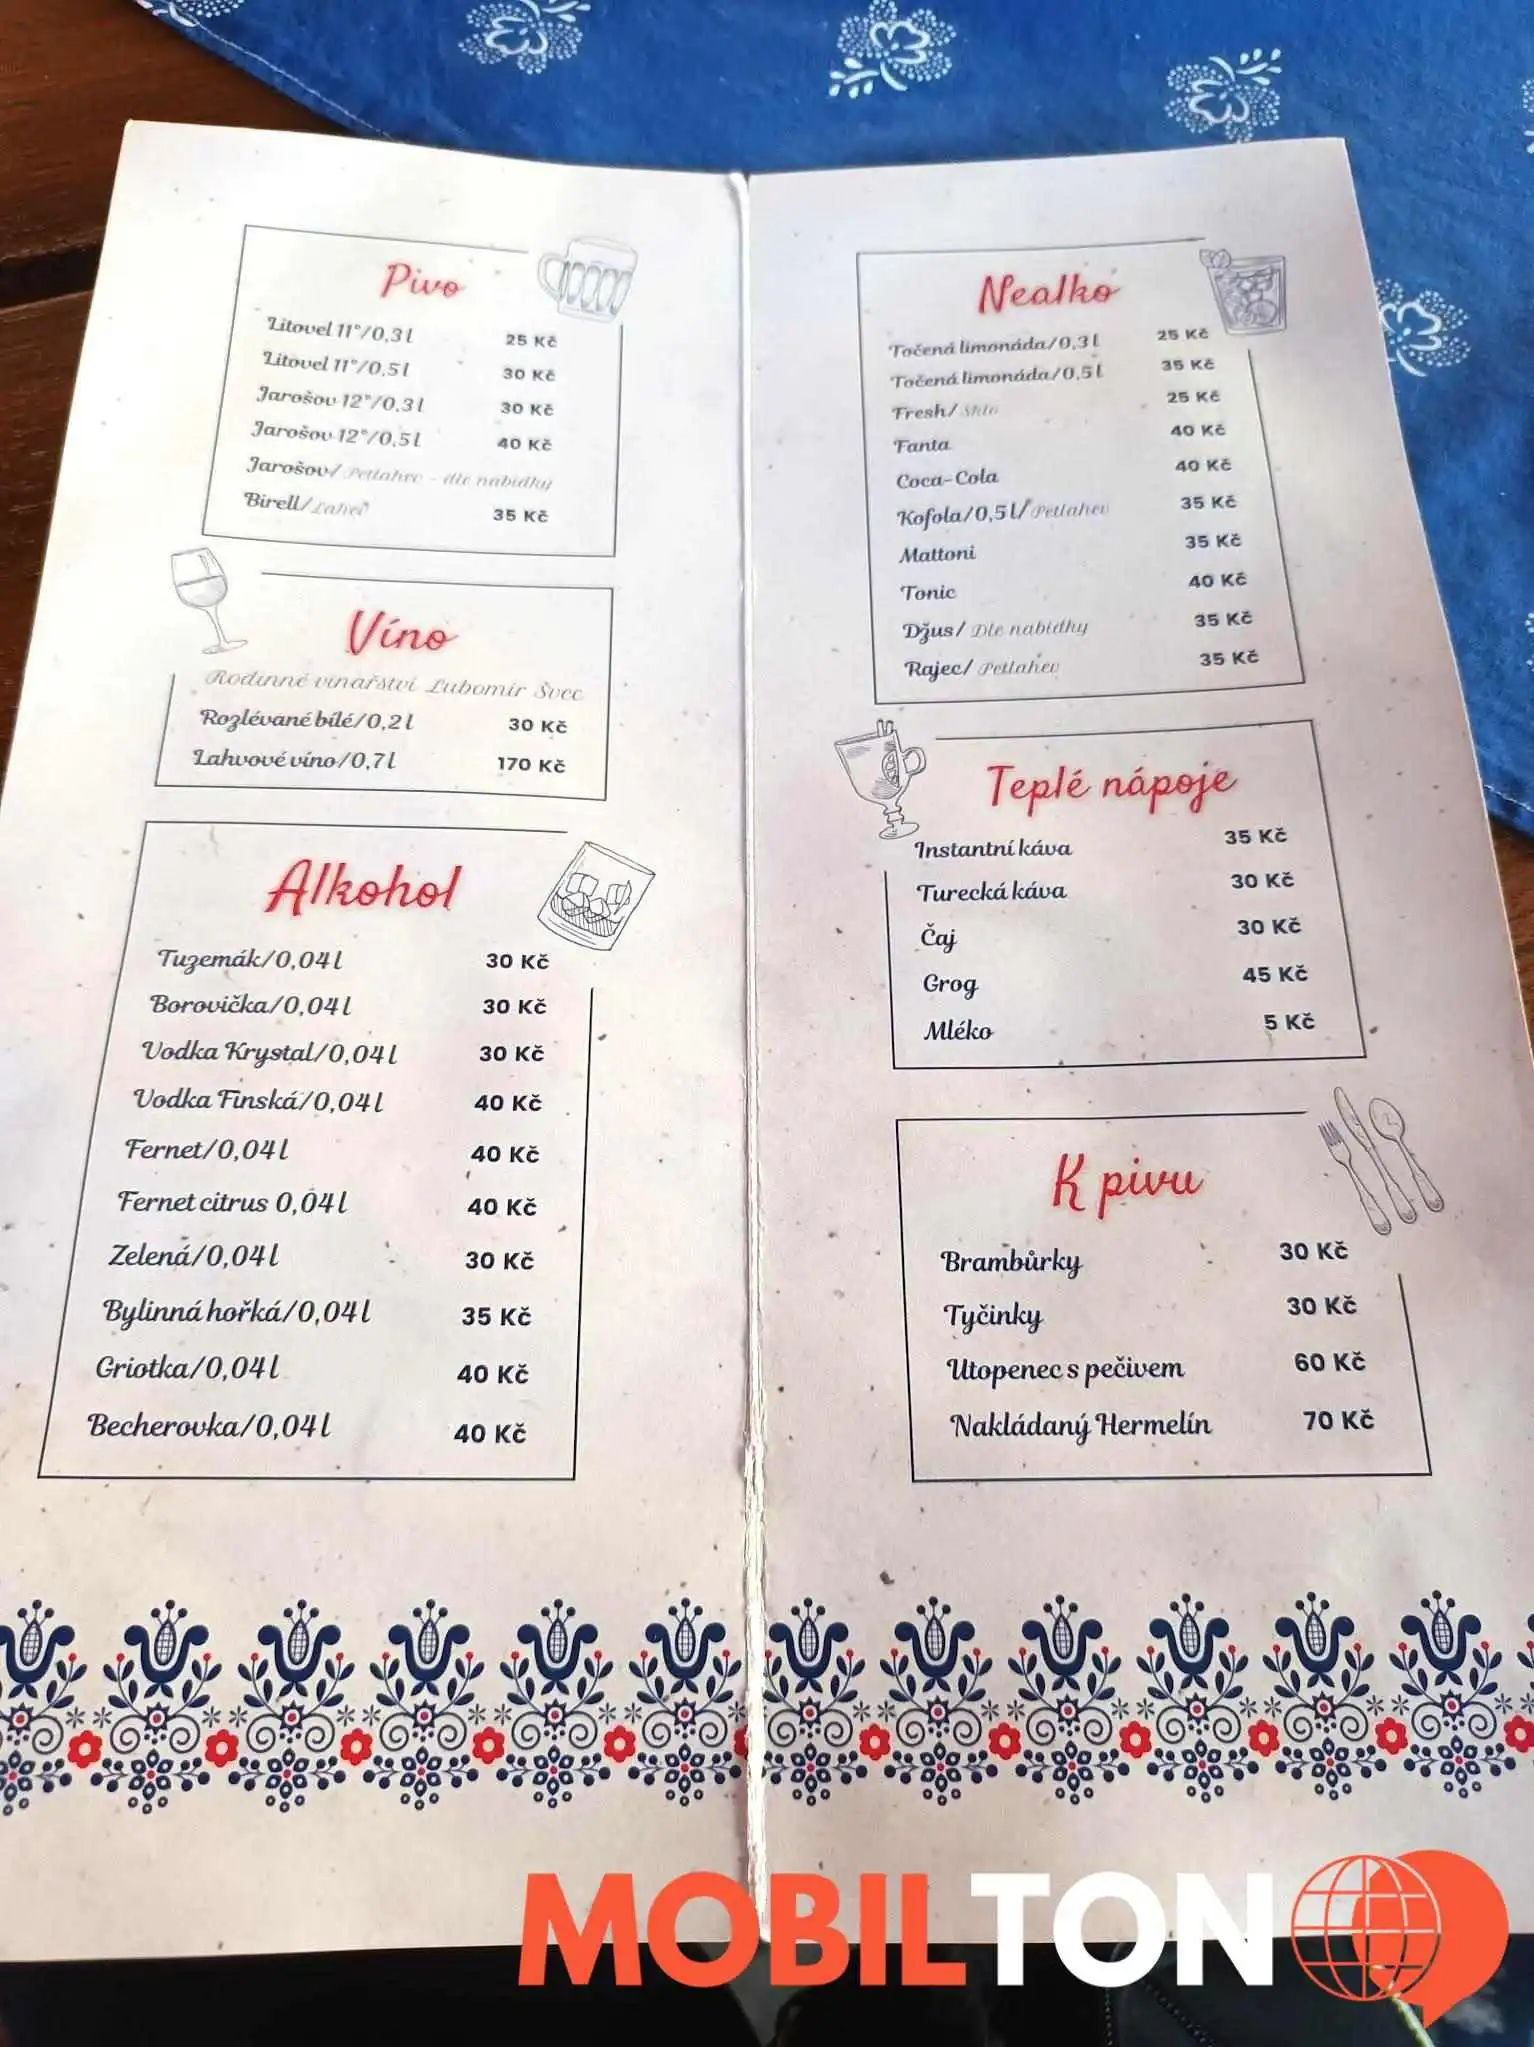 Pivo
Litovel 11°/0,3 l 25 Kč
Litovel 11°/0,5 l 30 Kč
Jarošov 12°/0,3 l 30 Kč
Jarošov 12°/0,5 l 40 Kč
Jarošov/ Petlahev - dle nabídky
Birell/ Lahev 35 Kč
Víno
Rodinné vinařství Lubomír Švec
Rozlévané bílé/0,2 l 30 Kč
Lahvové víno/0,7 l 170 Kč
Alkohol
Tuzemák/0,04 l 30 Kč
Borovička/0,04 l 30 Kč
Vodka Krystal/0,04 l 30 Kč
Vodka Finská/0,04 l 40 Kč
Fernet/0,04 l 40 Kč
Fernet citrus 0,04 l 40 Kč
Zelená/0,04 l 30 Kč
Bylinná hořká/0,04 l 35 Kč
Griotka/0,04 l 40 Kč
Becherovka/0,04 l 40 Kč
Nealko
Točená limonáda/0,3 l 25 Kč
Točená limonáda/0,5 l 35 Kč
Fresh/ Sklo 25 Kč
Fanta 40 Kč
Coca-Cola 40 Kč
Kofola/0,5 l/ Petlahev 35 Kč
Mattoni 35 Kč
Tonic 40 Kč
Džus/ Dle nabídky 35 Kč
Rajec/ Petlahev 35 Kč
Teplé nápoje
Instantní káva 35 Kč
Turecká káva 30 Kč
Čaj 30 Kč
Grog 45 Kč
Mléko 5 Kč
K pivu
Brambůrky 30 Kč
Tyčinky 30 Kč
Utopenec s pečivem 60 Kč
Nakládaný Hermelín 70 Kč
MOBILTON